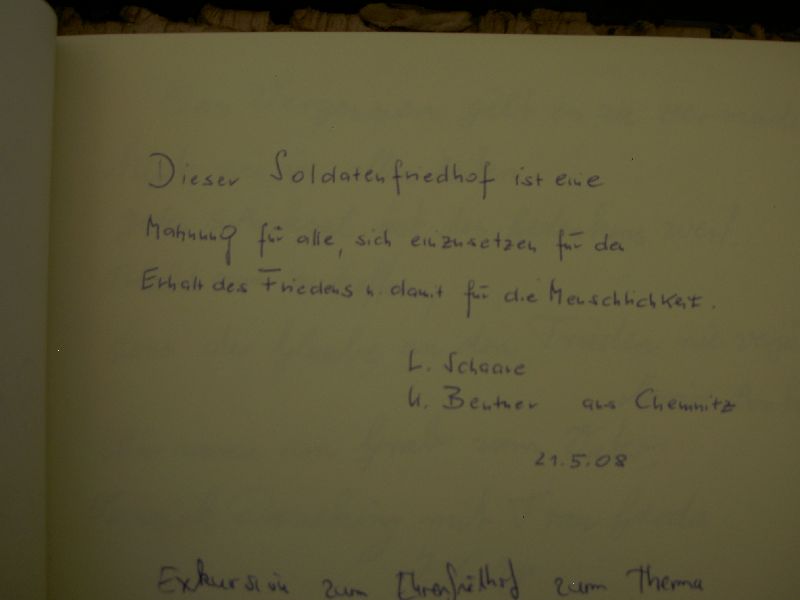 Dieser Soldatenfriedhof ist eine
Mahnung für alle, sich einzusetzen für den
Erhalt des Friedens u. damit für die Menschlichkeit.
L. Schaare
U. Beutner aus Chemnitz
21.5.08
Exkursion zum Ehrenfriedhof zum Thema